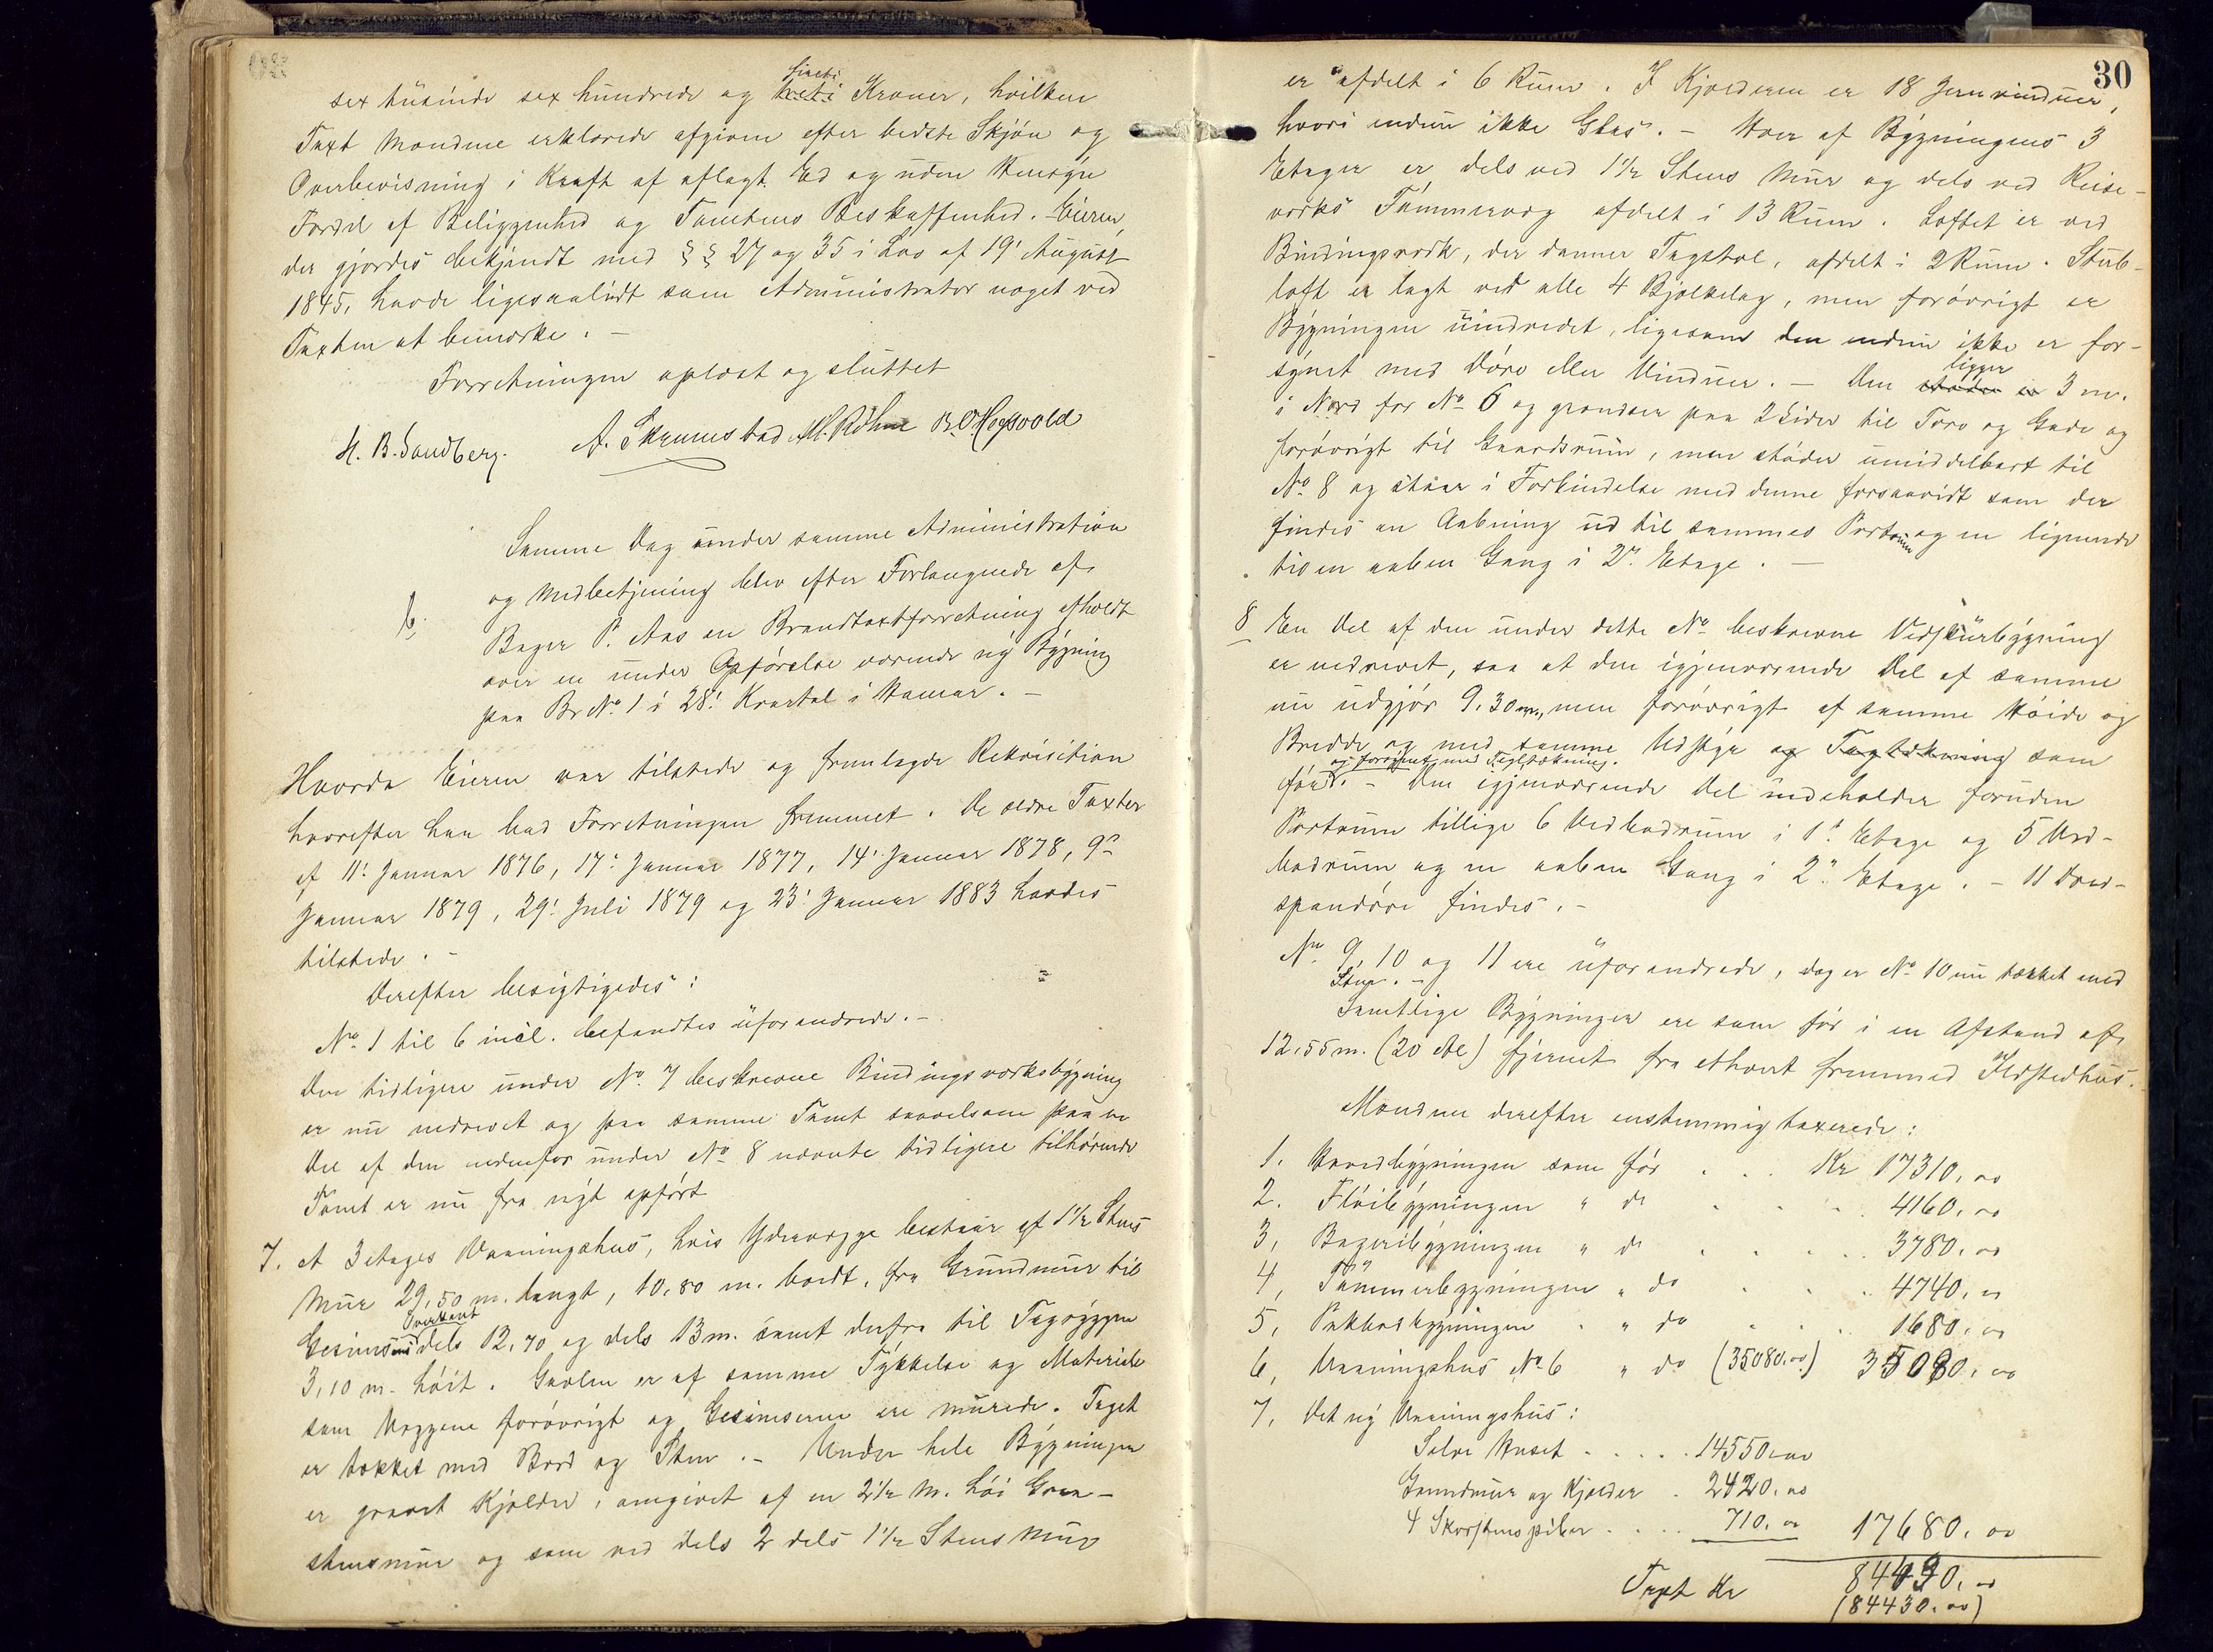 sex tusinde sex hundrede og firti Kroner, hvilken
Taxt Mændene erklærede afgiven efter bedste Skjøn og
Overbevisning i Kraft af aflagt Ed og uden Hensyn
Fordel af Beliggenhed og Tomtens Beskaffenhed. Eieren,
der gjordes bekjendt med §§ 27 og 35 i Lov af 19' August
1845, havde ligesaalidt som Administrator noget ved
Taxten at bemærke. –
Forretningen oplæst og sluttet
H. B. Sandberg. A. Skrumstad M. Röhne B. O. Hegsvold
Samme Dag under samme Administration
og Medbetjening blev efter Forlangende af
6.
Bager P. Aas en Brandtaxtforretning afholdt
over en under Opførelse værende ny Bygning
paa Br No. 1 i 28' Kvartal i Hamar. –
Hvorda Eieren var tilstede og fremlagde Rekvisition
hvorefter han bad Forretningen fremmet. De ældre Taxter
af 11' Januar 1876, 17' Januar 1877, 14' Januar 1878, 9de
Januar 1879, 29' Juli 1879 og 23' Januar 1883 havdes
tilstede. –
Derefter besigtigedes:
No. 1 til 6 incl. befandtes uforandrede. –
Den tidligere under No. 7 beskrevne Bindingsværksbygning
er nu nedrevet og paa samme Tomt saavelsom paa en
Del af den nedenfor under No 8 nævnte tidligere tilhørende
Tomt er nu fra nyt opført
7. et 3 etages Vaaningshus, hvis Ydervægge bestaar af 1½ Stens
Mur 29,50 m. langt, 10,80 m. bredt, fra Grundmur til
Gesimsens Overkant dels 12,70 og dels 13 m. samt derfra til Tagryggen
3,10 m. høit. Gavlen er af samme Tykkelse og Materiale
som Væggene forøvrigt og Gesimserne ere murede. Taget
er tækket med Bord og Sten. – Under hele Bygningen
er gravet Kjelder, omgivet af en 2½ M. høi Graa-
stensmur og som ved dels 2 dels 1½ Stens Mur
30
er afdelt i 6 Rum. I Kjelderen er 18 Jernvinduer,
hvori endnu ikke Glas. – Hver af Bygningens 3
Etager er dels ved 1½ Stens Mur og dels ved Reise-
værks Tømmervæg afdelt i 13 Rum. Loftet er ved
Bindingsværk, der danner Tagstol, afdelt i 2 Rum. Stub-
loft er lagt ved alle 4 Bjelkelag, men forøvrigt er
Bygningen uindredet, ligesom den endnu ikke er for-
synet med Døre eller Vinduer. – Den ligger 3 m.
i Nord for No 6 og grændser paa 2 Sider til Torv og Gade og
forøvrigt til Gaardsrum, men støder umiddelbart til
No. 8 og staar i Forbindelse med denne forsaavidt som der
findes en Aabning ud til sammes Portrum og en lignende
til en aaben Gang i 2' Etage. –
8 En Del af den under dette No beskrevne Vedskurbygning
er nedrevet, saa at den igjenværende Del af samme
nu udgjør 9,30 m., men forøvrigt af samme Høide og
Bredde og med samme Udstyr og Tagtækning som
før og forsynet med Tagtækning. – Den igjenværende Del indeholder foruden
Portrum tillige 6 Vedbodrum i 1' Etage og 5 Ved-
bodrum og en aaben Gang i 2' Etage. – 11
findes. –
No. 9, 10 og 11 ere uforandrede, dog er No 10 nu tækket med
Sten. –
Samtlige Bygninger ere som før i en Afstand af
12,55 m. (20 Al) fjernet fra ethvert fremmed Ildstedhus.
Mændene derefter enstemmig taxerede:
1. Hovedbygningen som før . . . Kr 17310,00
2. Fløibygningen " do . . . 4160,00
3, Bageribygningen " do . . . 3780,00
4, Tømmerbygningen " do . . . 4740,00
5, Pakbodbygningen " do . . . 1680,00
6, Vaaningshus No 6 " do (35080,00) 35080,00
7, Det ny Vaaningshus:
Selve Huset . . . . . 14550,00
Grundmur og Kjelder . 2420,00
4 Skorstenspiber . . . . 710,00 17680,00
Taxt Kr 84430,00
(84430,00)